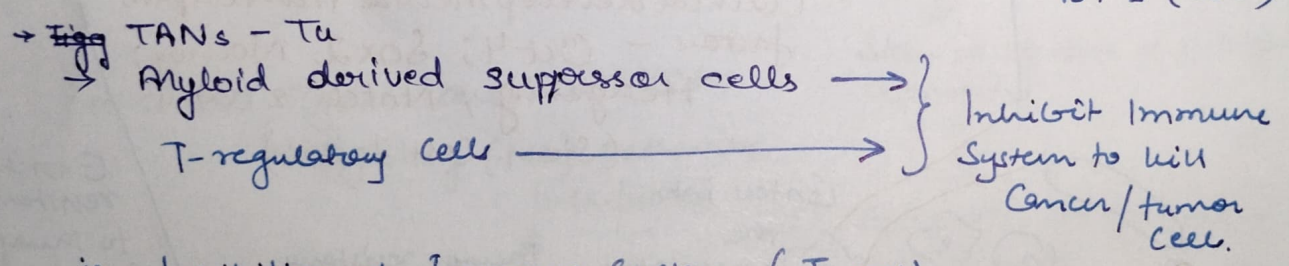 → TANs – Tu
→ Myloid derived suppressor cells →
T-regulatory cells →
Inhibit Immune
System to kill
Cancer/tumor
cell.